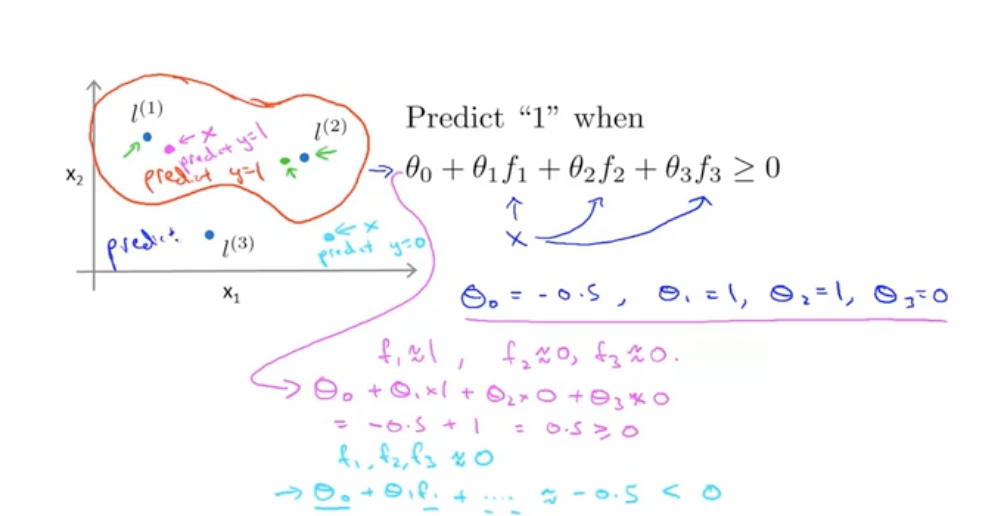 l⁽¹⁾
l⁽²⁾
← x
predict y=1
predict y=1
x₂
predict
l⁽³⁾
← x
predict y=0
x₁
Predict “1” when
→ θ₀ + θ₁f₁ + θ₂f₂ + θ₃f₃ ≥ 0
x
θ₀ = -0.5 , θ₁ = 1, θ₂ = 1, θ₃ = 0
f₁ ≈ 1 , f₂ ≈ 0, f₃ ≈ 0.
→ θ₀ + θ₁ × 1 + θ₂ × 0 + θ₃ × 0
= -0.5 + 1 = 0.5 ≥ 0
f₁, f₂, f₃ ≈ 0
→ θ₀ + θ₁f₁ + .... ≈ -0.5 < 0